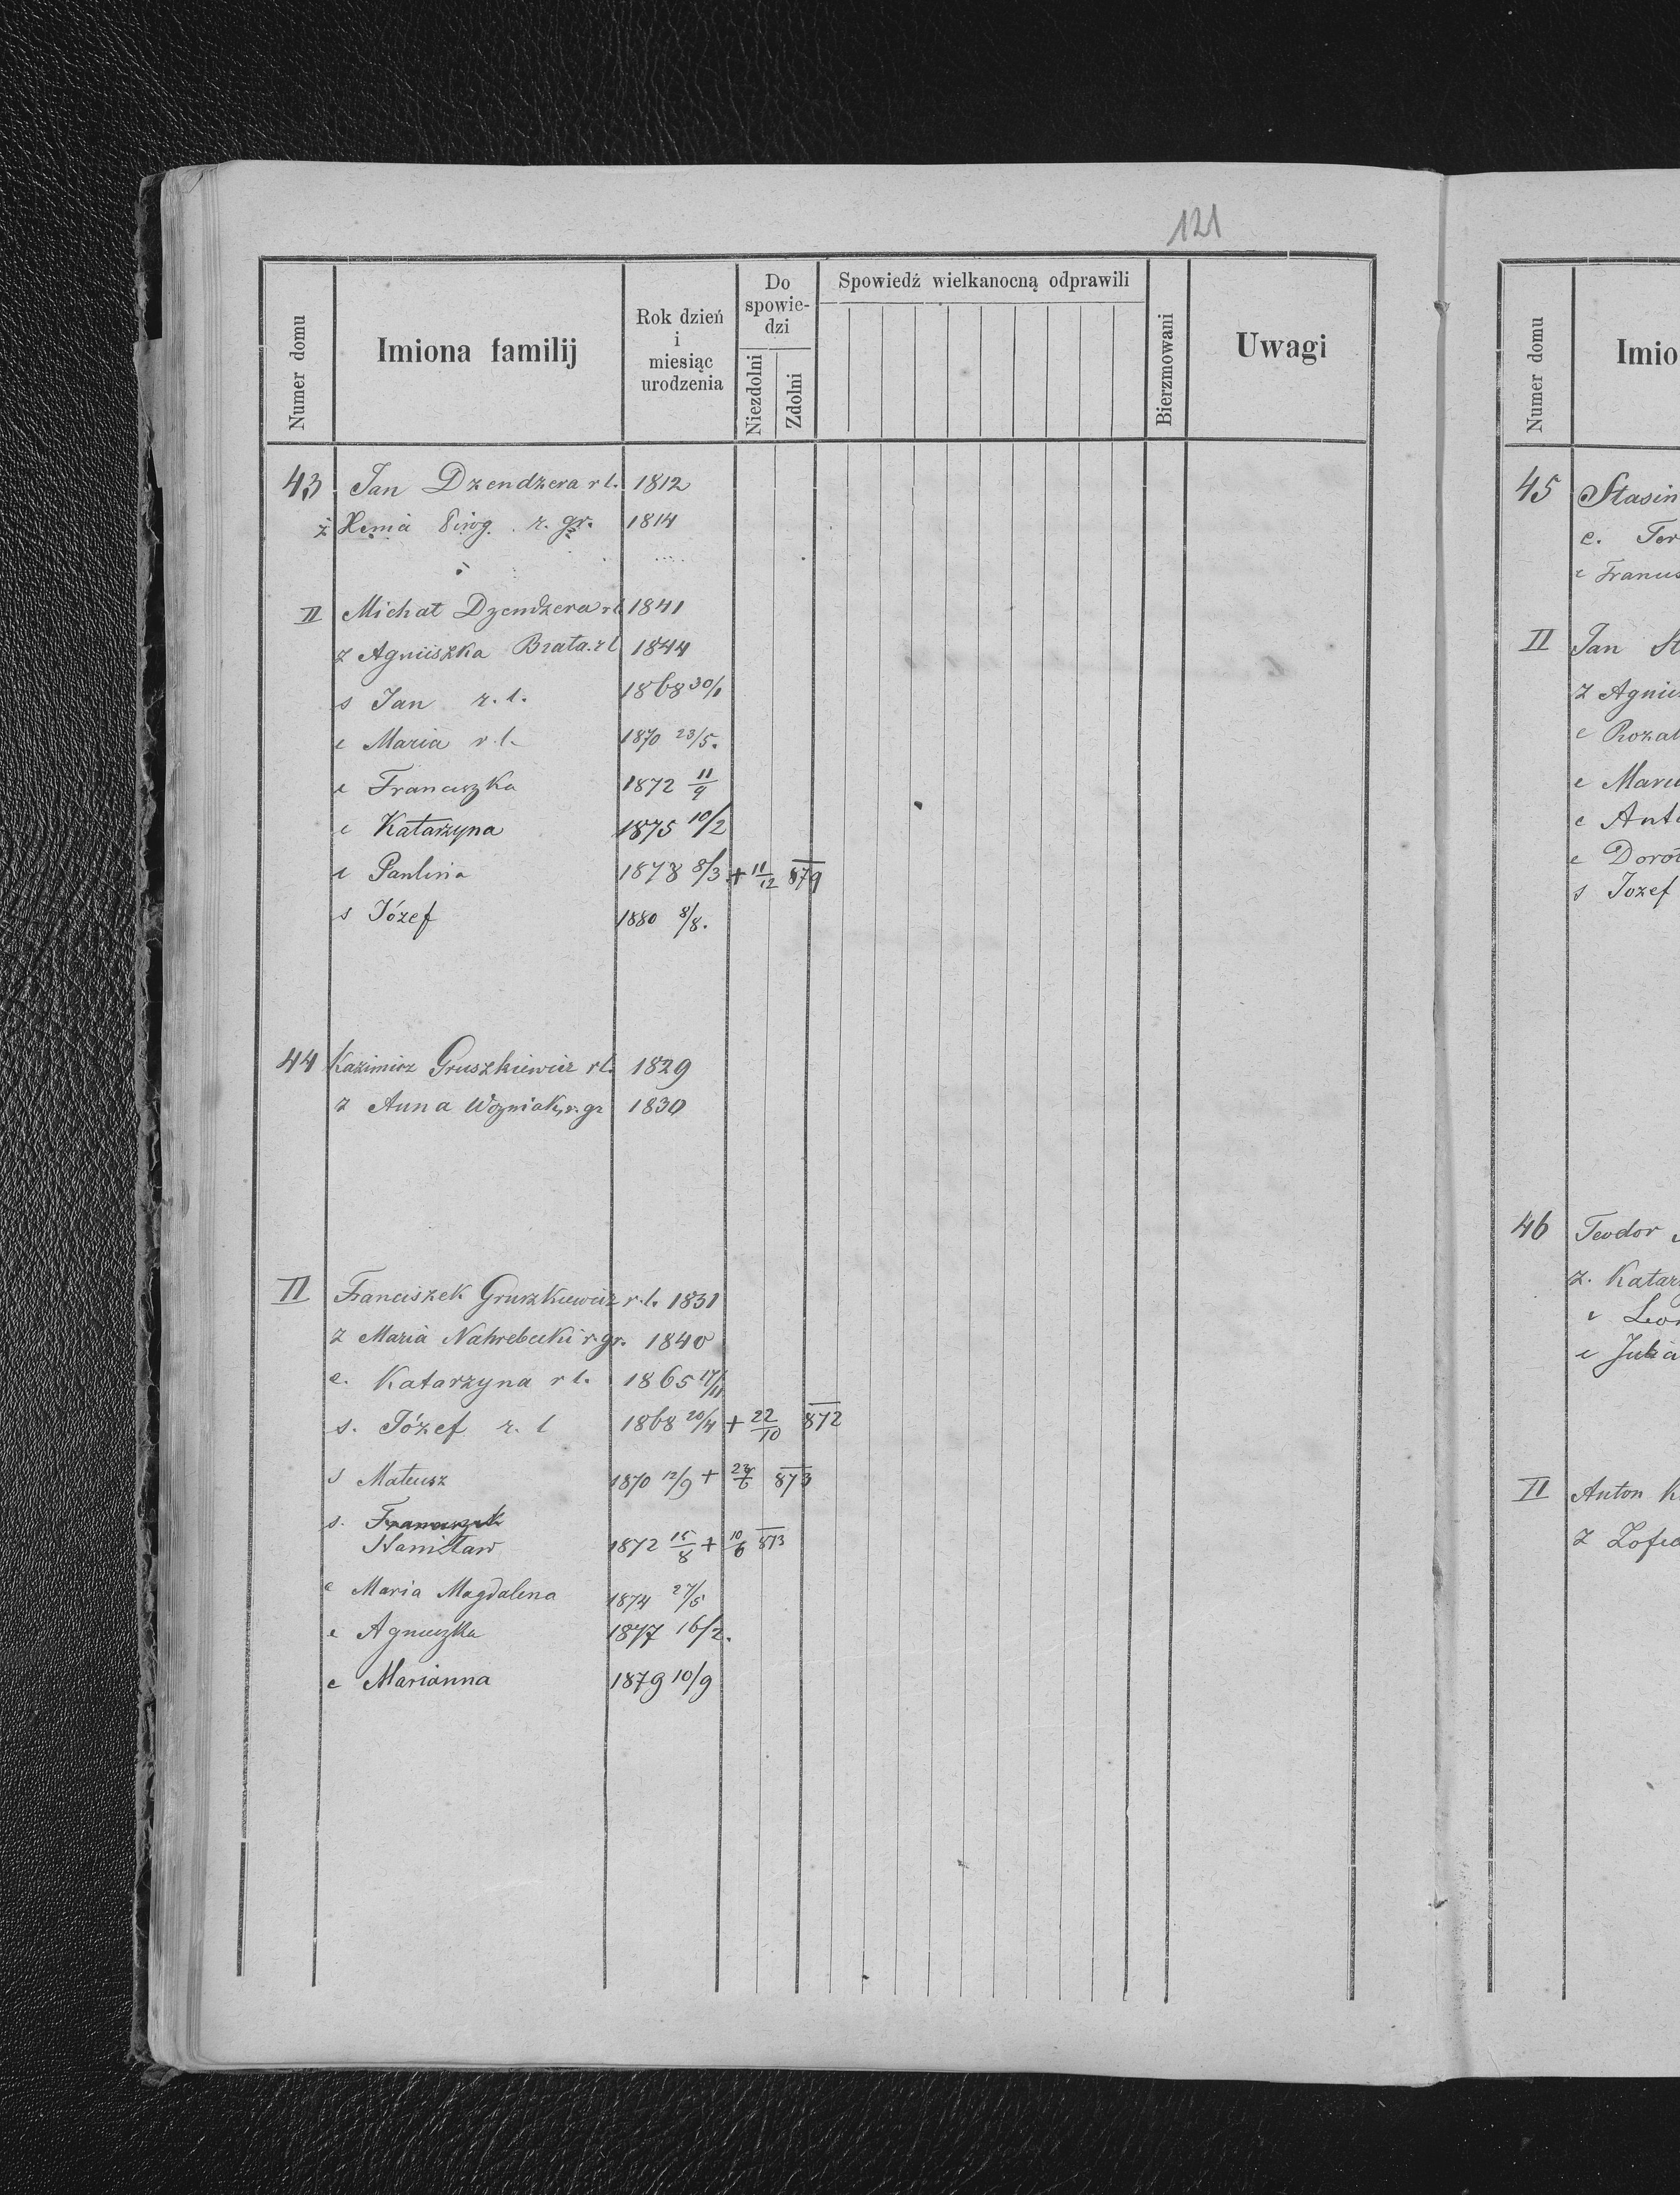 121
Numer domu
Imiona familij
Rok dzień
i
miesiąc
urodzenia
Do
spowie-
dzi
Niezdolni
Zdolni
Spowiedź wielkanocną odprawili
Bierzmowani
Uwagi
43 Jan Dzendzera r l. 1812
ż Xenia Pirog r. gr. 1814
II Michał Dzendzera r l 1841
z Agniszka Brata. r l 1844
s Jan r. l. 1868 30/1
c Maria r. l. 1870 23/5.
c Franciszka 1872 11/9
c Katarzyna 1875 10/2
c Paulina 1878 8/3 + 11/12 879
s Józef 1880 8/8.
44 Kazimirz Gruszkiewicz r l. 1829
z Anna Wozniak, r. gr 1830
II Franciszek Gruszkiewicz r. l. 1831
z Maria Nahrebecki r. gr. 1840
c. Katarzyna r l. 1865 17/11
s. Józef r. l 1868 20/4 + 22/10 872
s Mateusz 1870 12/9 + 873
s. Franciszek
Stanisław 1872 15/8 + 10/6 873
c Maria Magdalena 1874 27/5
c Agnieszka 1877 16/2.
c Marianna 1879 10/9
Numer domu
Imio
45 Stasin
c. Ter
c Francis
II Jan St
z Agnie
c Rozal
c Mary
c Anto
c Doro
s Jozef
46 Teodor
z. Katar
c Leon
c Julia
II Anton K
z Zofia